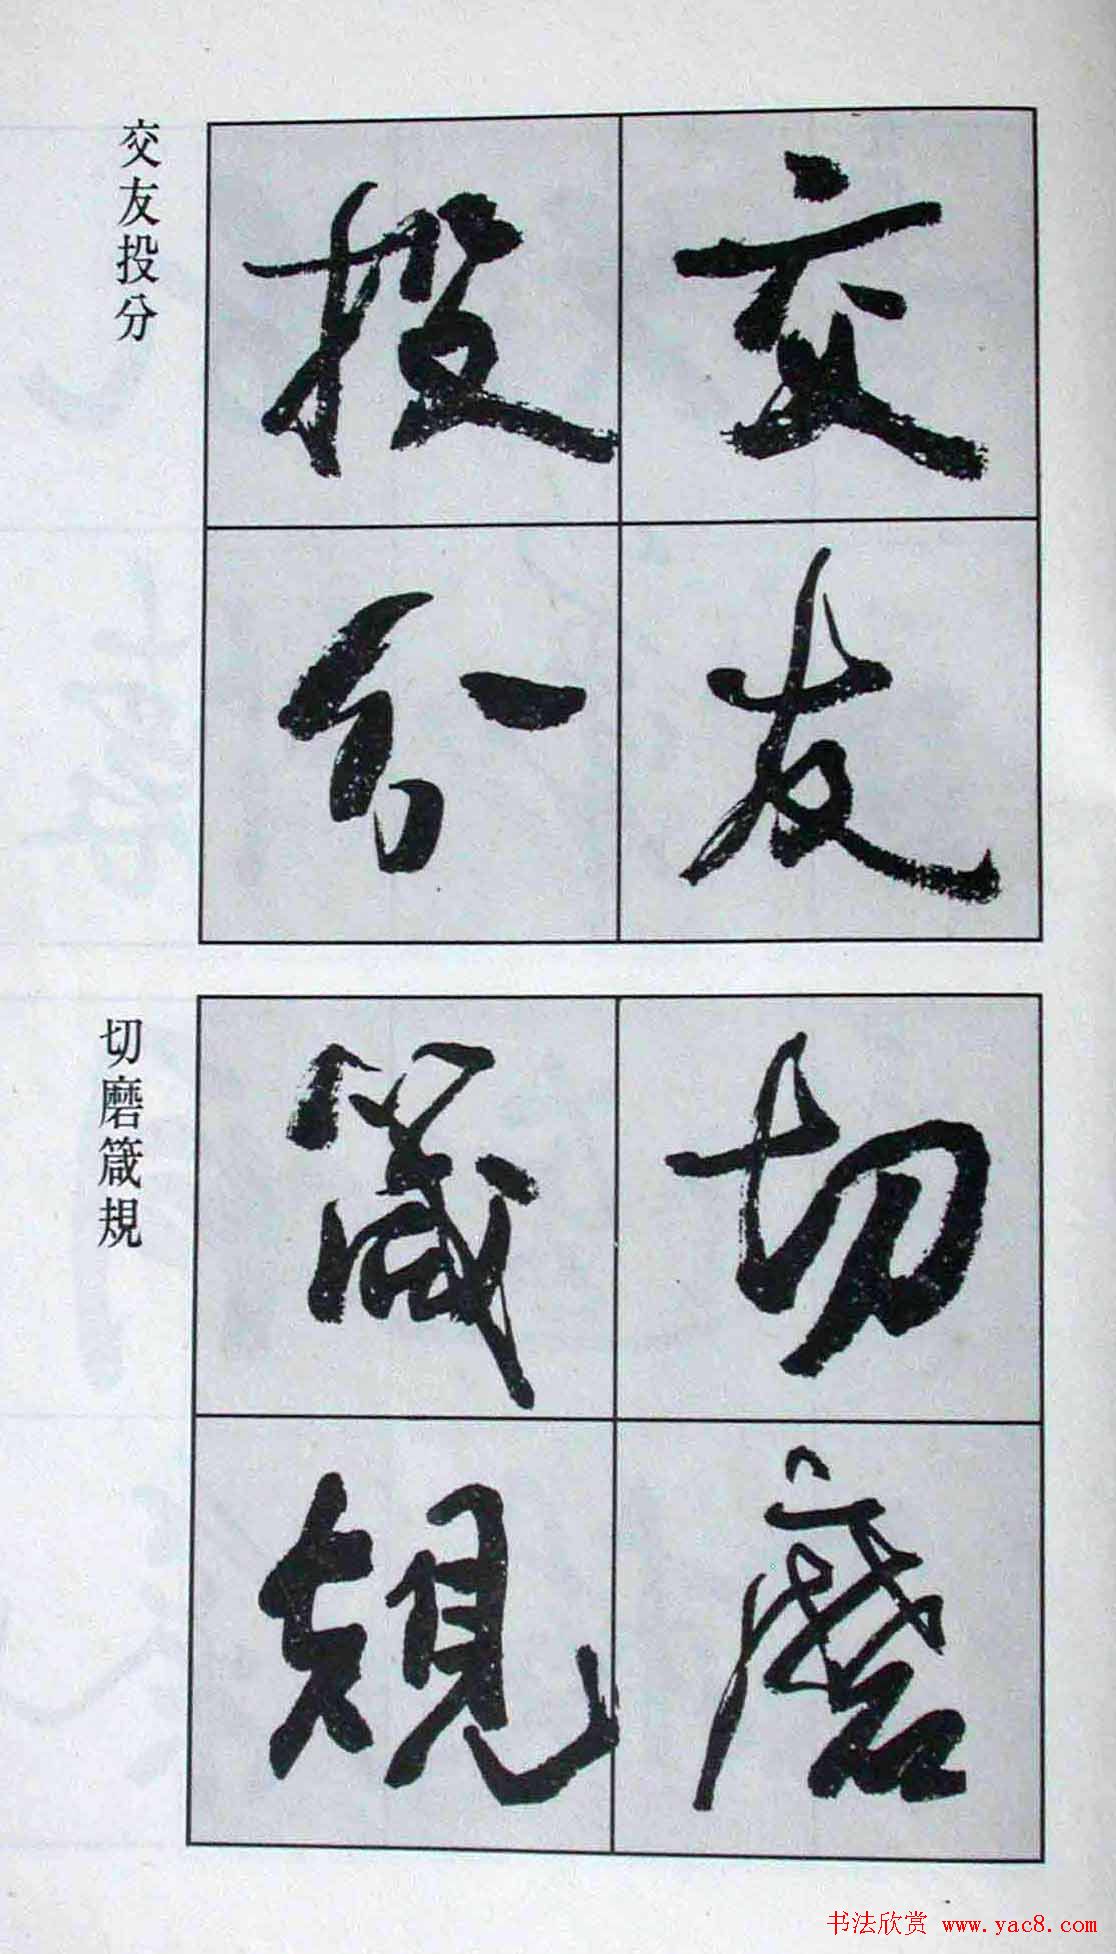 交友
投分
交友投分
切磨
箴規
切磨箴規
书法欣赏 www.yac8.com